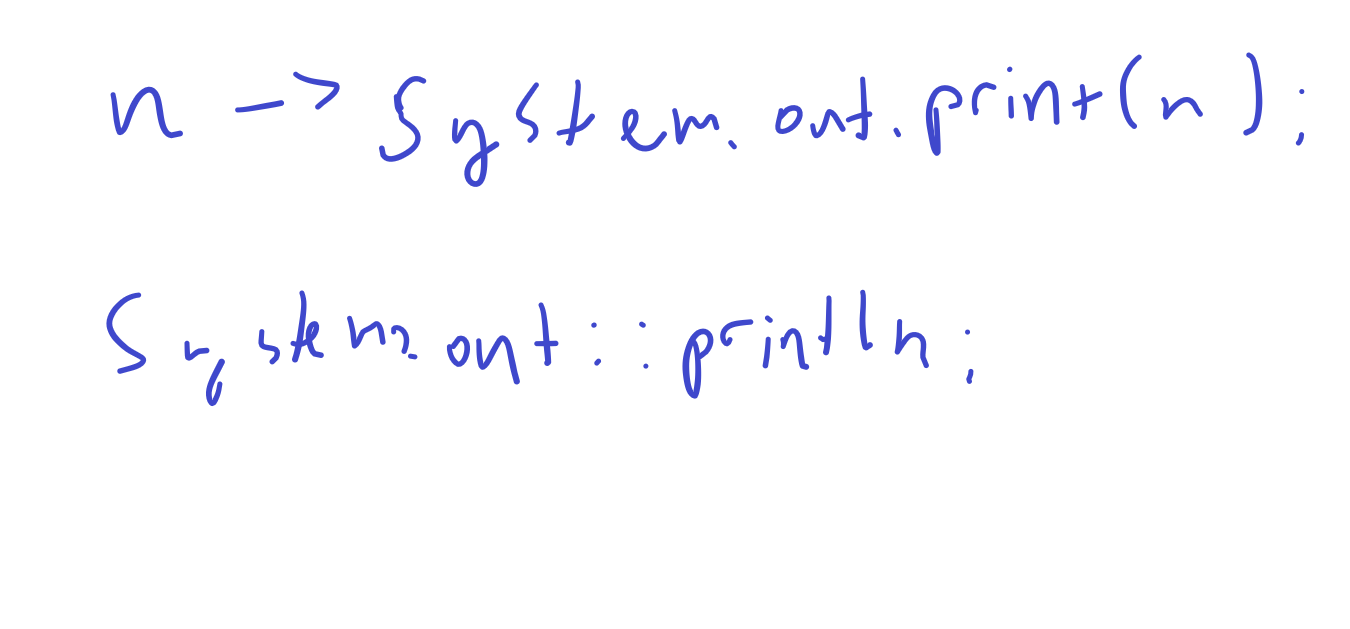 n -> System.out.print(n);
System.out::println;